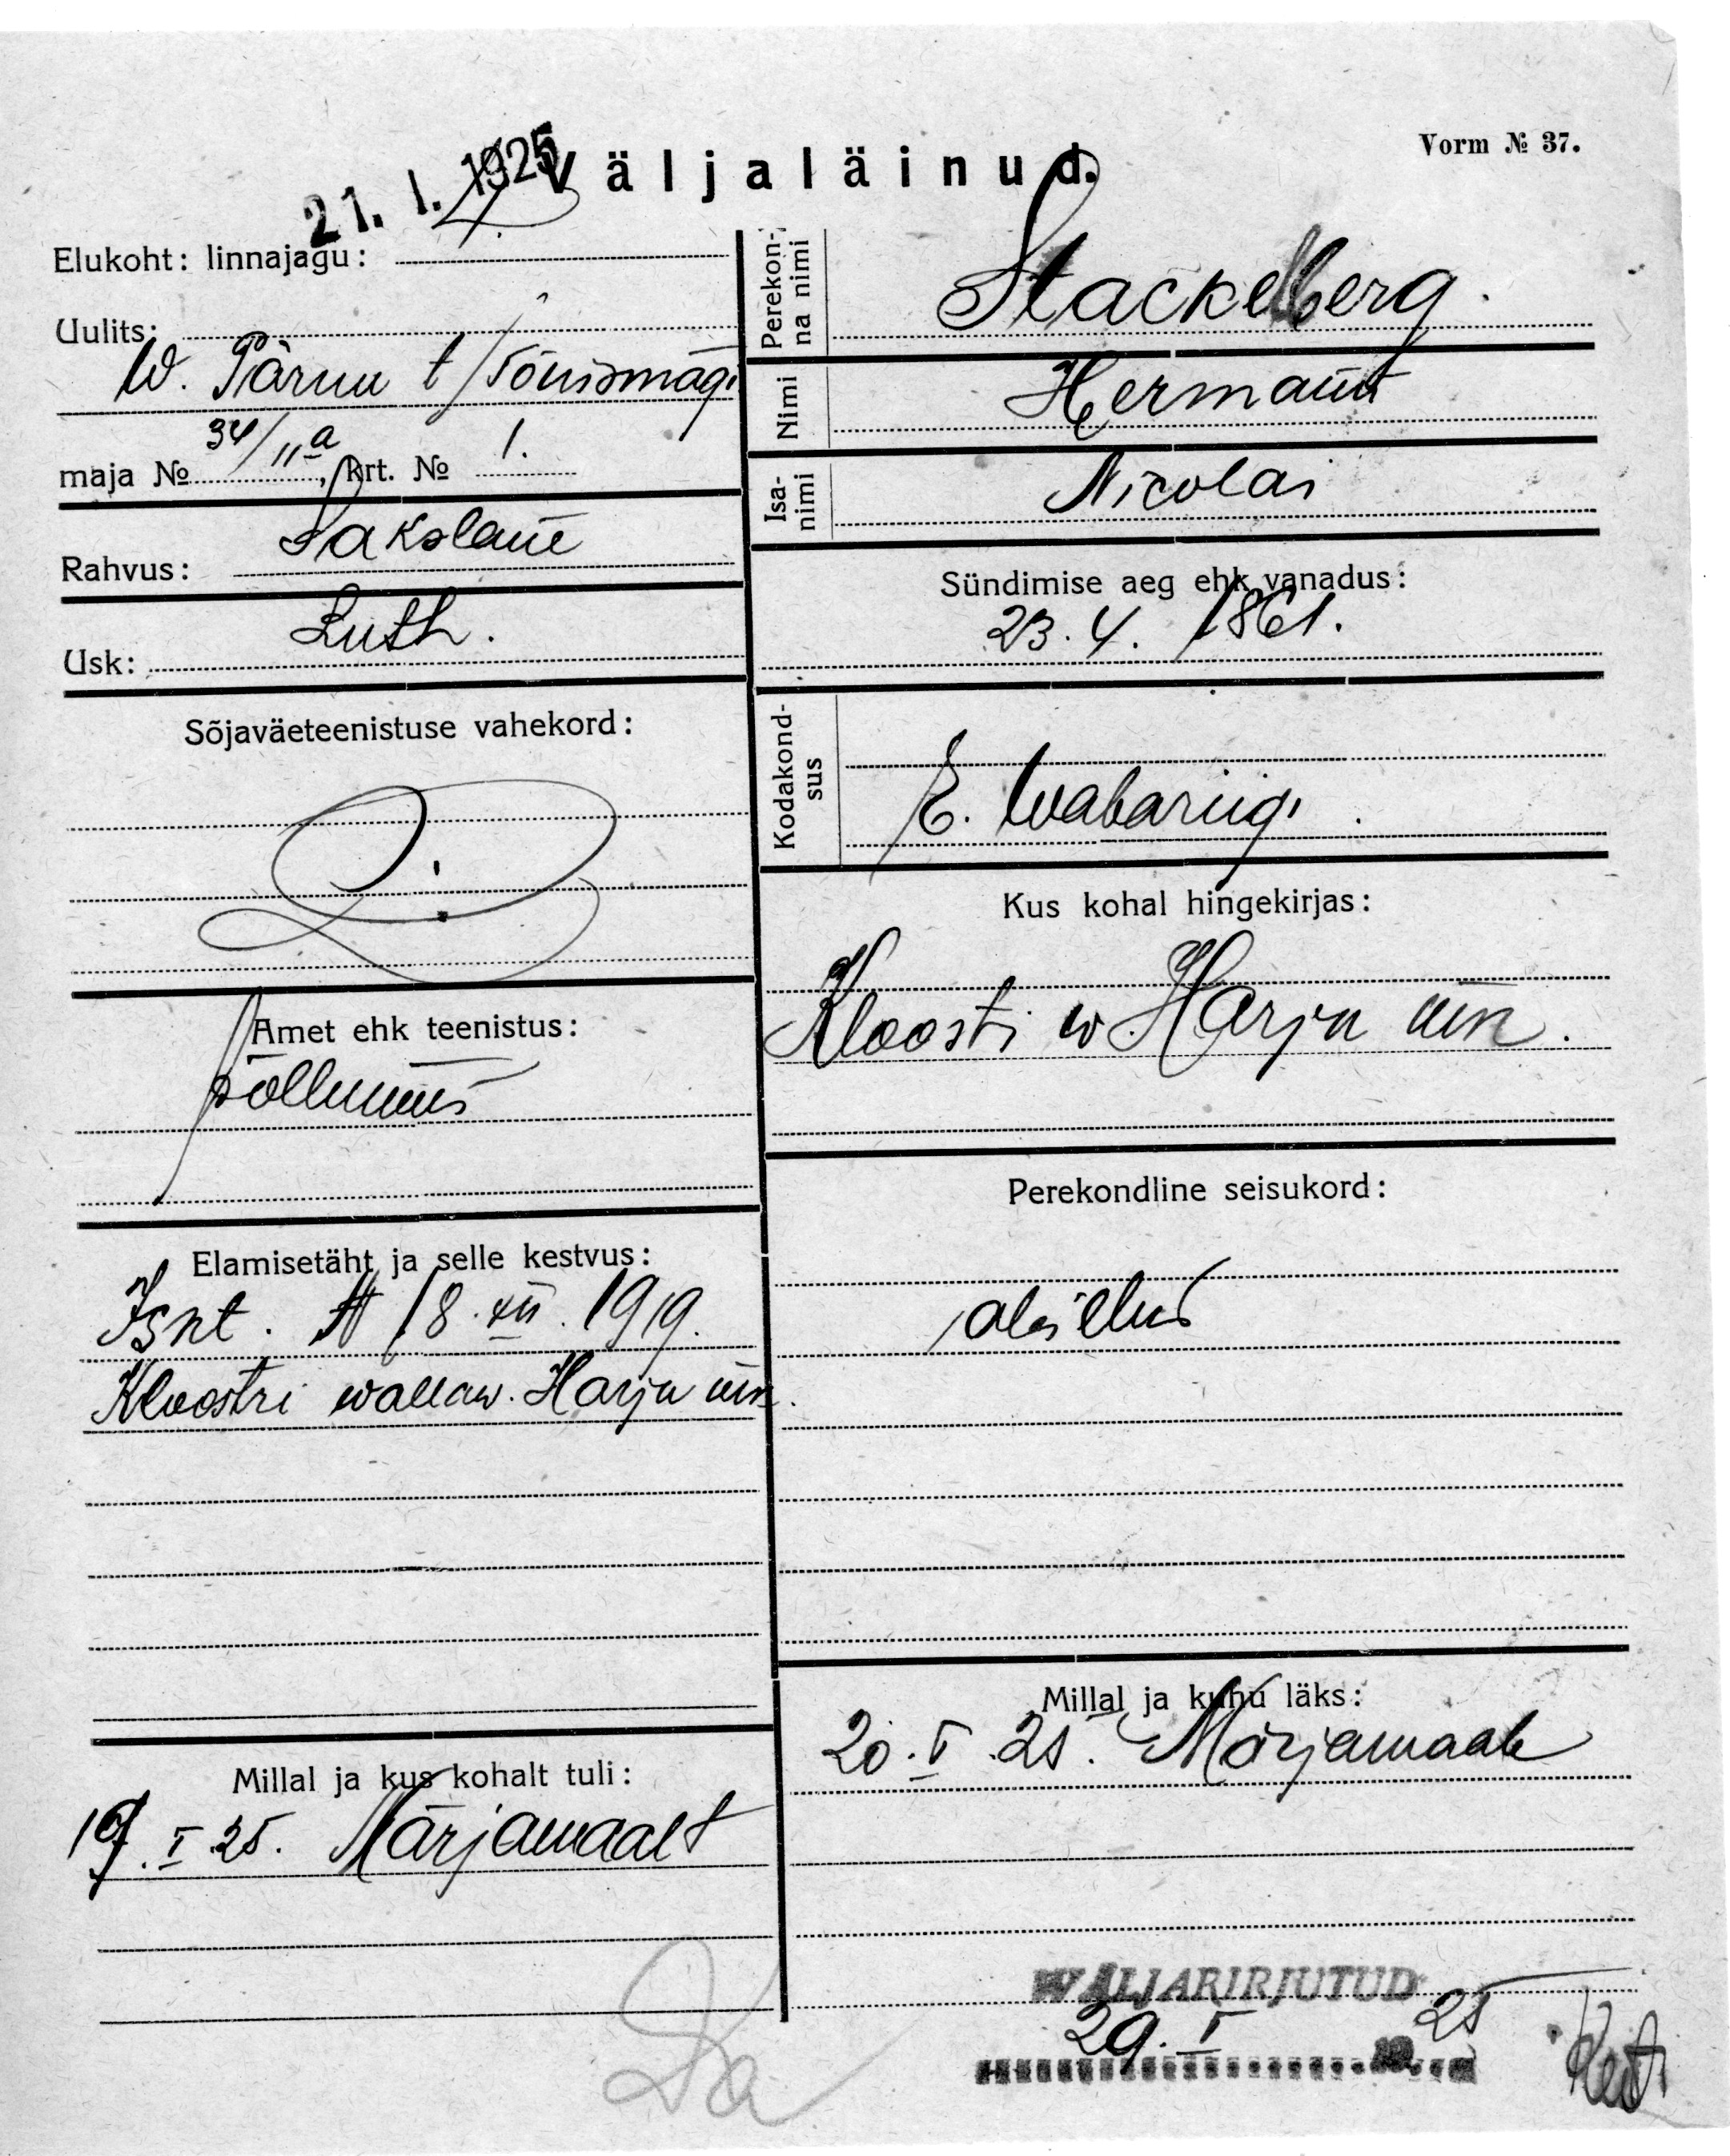 Vorm № 37.
21. I. 1925
Väljaläinud.
Elukoht: linnajagu:
Uulits:
W. Pärnu t/Tõnismägi
maja № 34/11a, krt. № 1.
Rahvus: Sakslane
Usk: Luth.
Sõjaväeteenistuse vahekord:
Amet ehk teenistus:
põllumees
Elamisetäht ja selle kestvus:
Isnt. A 18. XII. 1919.
Kloostri wallaw. Harju
Millal ja kus kohalt tuli:
19. I 25. Märjamaalt
Perekonna nimi
Stackelberg.
Nimi
Hermann
Isanimi
Nicolai
Sündimise aeg ehk vanadus:
23. 4. 1861.
Kodakondsus
E. Wabariigi
Kus kohal hingekirjas:
Kloostri w Harju
Perekondline seisukord:
abielus
Millal ja kuhu läks:
20. I. 25. Märjamaale
WÄLJAKIRJUTUD
29. I 1925